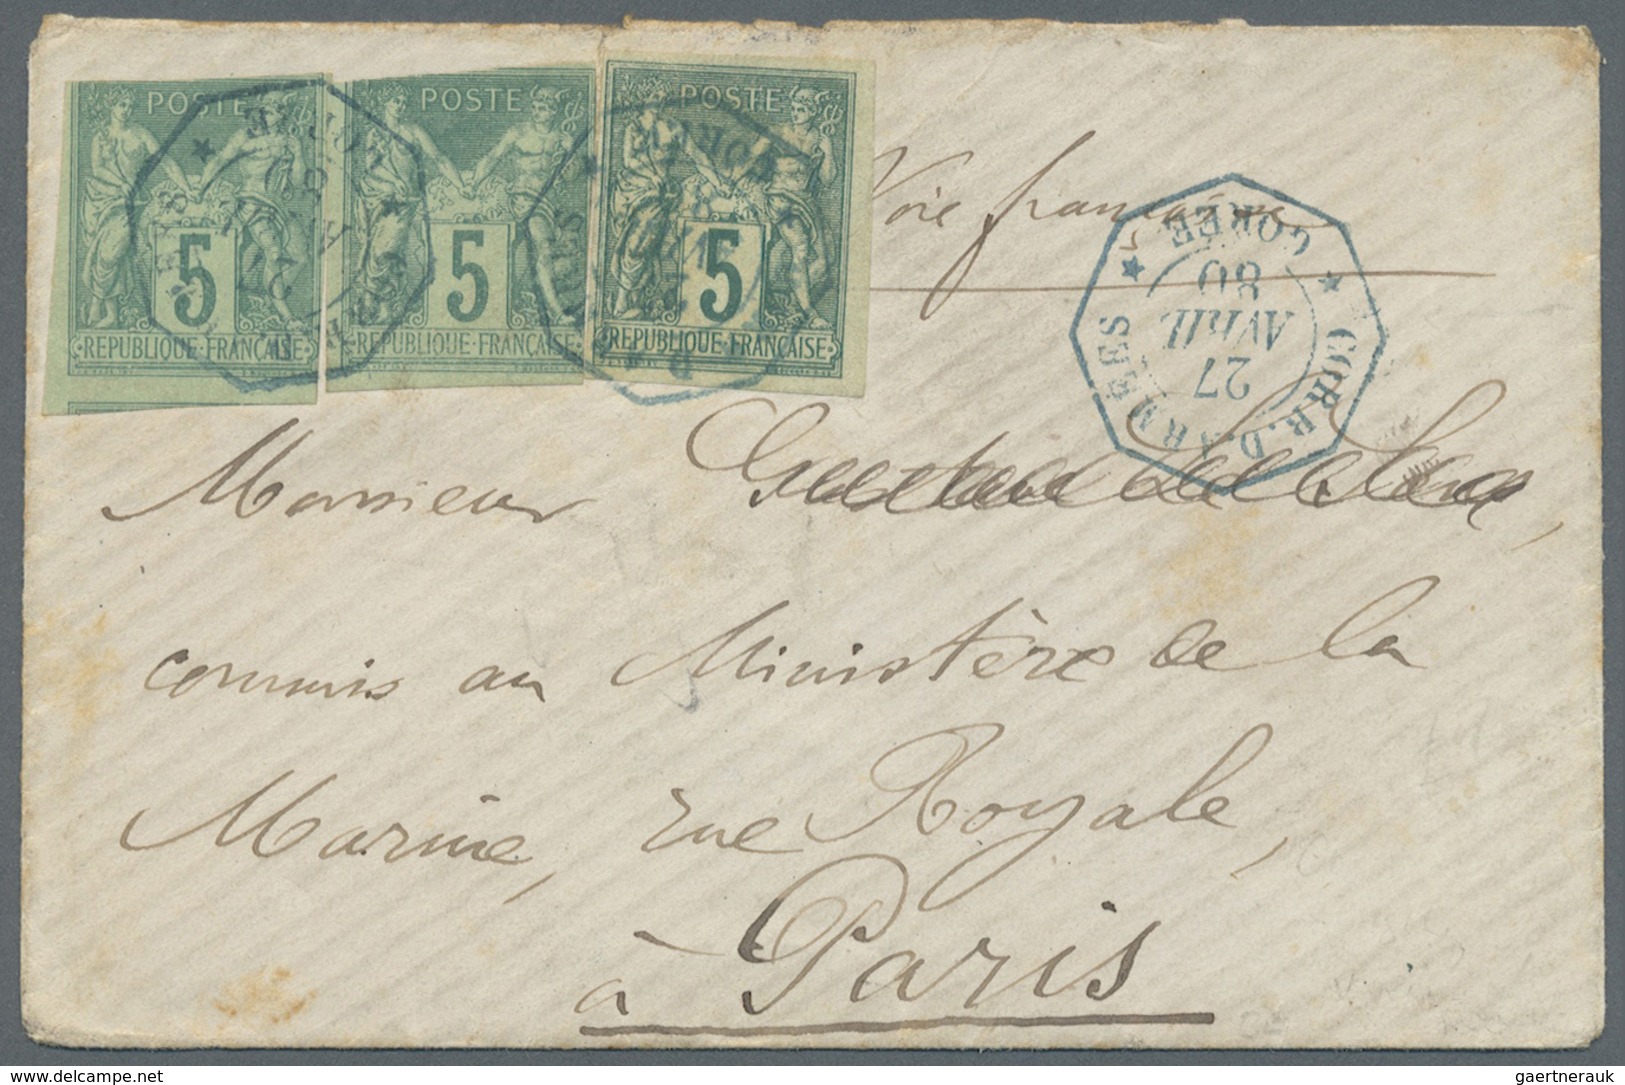 POSTE POSTE POSTE
5 5 5
REPUBLIQUE·FRANÇAISE REPUBLIQUE·FRANÇAISE REPUBLIQUE·FRANÇAISE
Voie française
CORR. D. ARMÉES
GOREE
27
AVRIL
80
Monsieur
commis au Ministère de la
Marine, rue Royale,
à Paris
delcampe.net
gaertnerauk